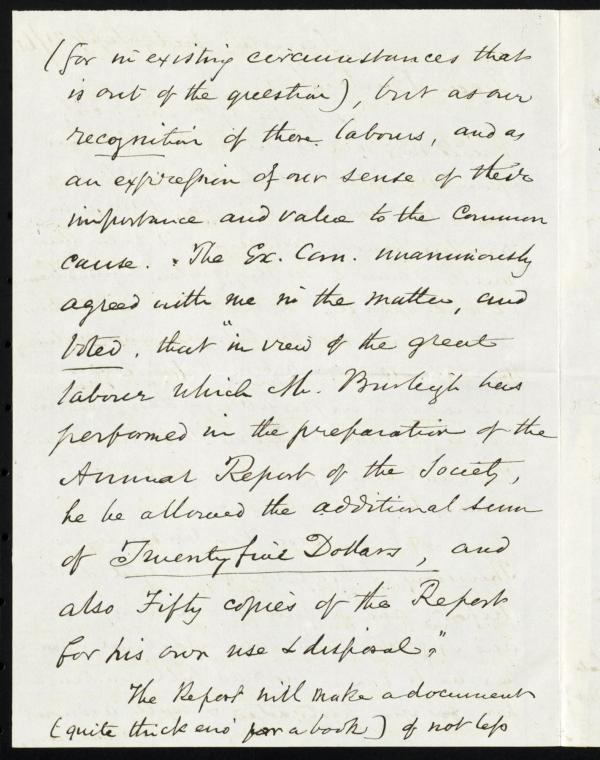 (for in existing circumstances that
is out of the question), but as our
recognition of those labours, and as
an expression of our sense of their
importance and value to the common
cause. The Ex. Com. unanimously
agreed with me in the matter, and
voted, that "in view of the great
labour which Mr. Burleigh has
performed in the preparation of the
Annual Report of the Society,
he be allowed the additional sum
of Twenty five Dollars, and
also Fifty copies of the Report
for his own use & disposal."
The Report will make a document
(quite thick eno' for a book) of not less